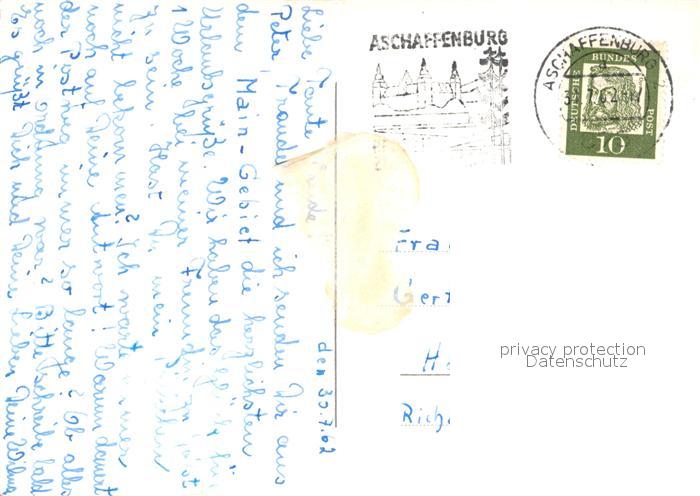 den 30.7.62
Liebe Tante
Peter, Traudel und ich senden Dir aus
dem Main-Gebiet die herzlichsten
Urlaubsgrüße. Wir haben das Glück für
1 Woche bei meiner Freundin zu Gast
zu sein. Hast Du mein
nicht bekommen? Ich warte immer
noch auf Deine Antwort! Warum dauert
der Postweg immer so lange? Ob alles
noch in Ordnung war? Bitte schreibe bald
Es grüßt Dich und Deine Lieben Deine Wilma
ASCHAFFENBURG
ASCHAFFENBURG
DEUTSCHE
BUNDES
POST
10
Frau
Gert
H
Rich
privacy protection
Datenschutz